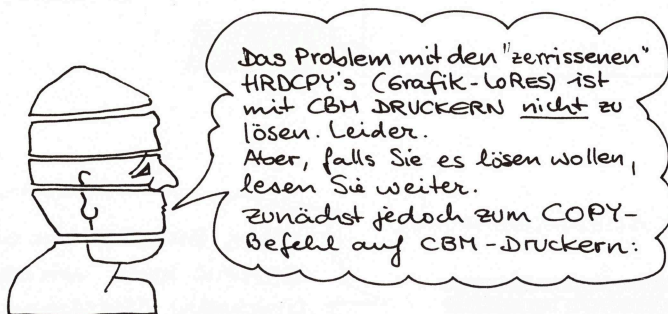 Das Problem mit den "zerrissenen"
HRDCPY's (Grafik-LoRes) ist
mit CBM DRUCKERN nicht zu
lösen. Leider.
Aber, falls Sie es lösen wollen,
lesen Sie weiter.
Zunächst jedoch zum COPY-
Befehl auf CBM-Druckern: